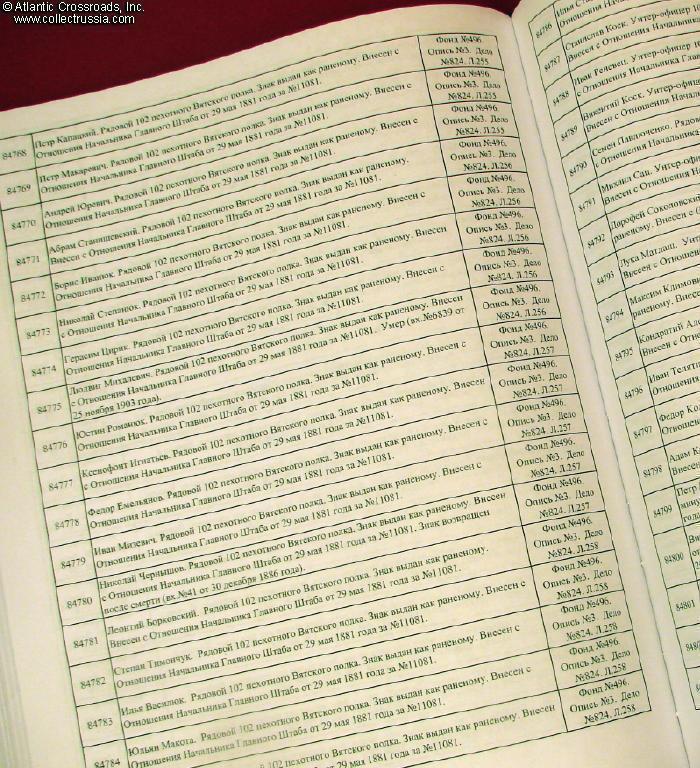 © Atlantic Crossroads, Inc.
www.collectrussia.com
84768
Петр Капацкий. Рядовой 102 пехотного Вятского полка. Знак выдан как раненому. Внесен с
Отношения Начальника Главного Штаба от 29 мая 1881 года за №11081.
Фонд №496.
Опись №3. Дело
№824. Л.255
84769
Петр Макаревич. Рядовой 102 пехотного Вятского полка. Знак выдан как раненому. Внесен с
Отношения Начальника Главного Штаба от 29 мая 1881 года за №11081.
Фонд №496.
Опись №3. Дело
№824. Л.255
84770
Андрей Юревич. Рядовой 102 пехотного Вятского полка. Знак выдан как раненому. Внесен с
Отношения Начальника Главного Штаба от 29 мая 1881 года за №11081.
Фонд №496.
Опись №3. Дело
№824. Л.255
84771
Абрам Станишевский. Рядовой 102 пехотного Вятского полка. Знак выдан как раненому.
Внесен с Отношения Начальника Главного Штаба от 29 мая 1881 года за №11081.
Фонд №496.
Опись №3. Дело
№824. Л.256
84772
Борис Иванюк. Рядовой 102 пехотного Вятского полка. Знак выдан как раненому. Внесен с
Отношения Начальника Главного Штаба от 29 мая 1881 года за №11081.
Фонд №496.
Опись №3. Дело
№824. Л.256
84773
Николай Степанюк. Рядовой 102 пехотного Вятского полка. Знак выдан как раненому. Внесен
с Отношения Начальника Главного Штаба от 29 мая 1881 года за №11081.
Фонд №496.
Опись №3. Дело
№824. Л.256
84774
Герасим Цирик. Рядовой 102 пехотного Вятского полка. Знак выдан как раненому. Внесен с
Отношения Начальника Главного Штаба от 29 мая 1881 года за №11081.
Фонд №496.
Опись №3. Дело
№824. Л.256
84775
Людвиг Михалевич. Рядовой 102 пехотного Вятского полка. Знак выдан как раненому. Внесен
с Отношения Начальника Главного Штаба от 29 мая 1881 года за №11081. Умер (вх.№6839 от
25 ноября 1903 года).
Фонд №496.
Опись №3. Дело
№824. Л.256
84776
Юстин Романюк. Рядовой 102 пехотного Вятского полка. Знак выдан как раненому. Внесен с
Отношения Начальника Главного Штаба от 29 мая 1881 года за №11081.
Фонд №496.
Опись №3. Дело
№824. Л.257
84777
Ксенофонт Игнатьев. Рядовой 102 пехотного Вятского полка. Знак выдан как раненому. Внесен
с Отношения Начальника Главного Штаба от 29 мая 1881 года за №11081.
Фонд №496.
Опись №3. Дело
№824. Л.257
84778
Федор Емельянов. Рядовой 102 пехотного Вятского полка. Знак выдан как раненому. Внесен с
Отношения Начальника Главного Штаба от 29 мая 1881 года за №11081.
Фонд №496.
Опись №3. Дело
№824 Л.257
84779
Иван Мизевич. Рядовой 102 пехотного Вятского полка. Знак выдан как раненому. Внесен с
Отношения Начальника Главного Штаба от 29 мая 1881 года за №11081.
Фонд №496.
Опись №3. Дело
№824. Л.257
84780
Николай Чернышов. Рядовой 102 пехотного Вятского полка. Знак выдан как раненому. Внесен
с Отношения Начальника Главного Штаба от 29 мая 1881 года за №11081. Знак возвращен
после смерти (вх.№41 от 30 декабря 1886 года).
Фонд №496.
Опись №3. Дело
№824. Л.257
84781
Леонтий Борковский. Рядовой 102 пехотного Вятского полка. Знак выдан как раненому.
Внесен с Отношения Начальника Главного Штаба от 29 мая 1881 года за №11081.
Фонд №496.
Опись №3. Дело
№824. Л.258
84782
Степан Тимончук. Рядовой 102 пехотного Вятского полка. Знак выдан как раненому. Внесен с
Отношения Начальника Главного Штаба от 29 мая 1881 года за №11081.
Фонд №496.
Опись №3. Дело
№824. Л.258
84783
Илья Василюк. Рядовой 102 пехотного Вятского полка. Знак выдан как раненому. Внесен с
Отношения Начальника Главного Штаба от 29 мая 1881 года за №11081.
Фонд №496.
Опись №3. Дело
№824. Л.258
84784
Юльян Макота. Рядовой 102 пехотного Вятского полка. Знак выдан как раненому. Внесен с
Отношения Начальника Главного Штаба от 29 мая 1881 года за №11081.
Фонд №496.
Опись №3. Дело
№824. Л.258
Рядовой 102 пехотного Вятского полка. Знак выдан как раненому. Внесен
Начальника Главного Штаба от 29 мая 1881 года за №11081.
Фонд №496.
Опись №3. Дело
№824. Л.258
84786
Отношения
84787
Станислав Коск. Унтер-офицер
Внесен с Отношения Начальника
84788
Унтер-офицер
с Отношения Начальника
84789
Викентий Коск. Унтер-офицер
Внесен с Отношения
84790
Семен Павлюченко. Рядовой
Отношения Начальника
84791
Михаил Сац. Унтер-офицер
Внесен с Отношения
84792
Дорофей Соколовский
раненому. Внесен с
84793
Лука Матлаш.
Внесен с Отношения
84794
Максим Климович
раненому. Внесен
84795
Кондратий
Внесен с
84796
Иван
Отношения
84797
Федор
Отношения
84798
Адам
Внесен
84799
Петр
84800
84801